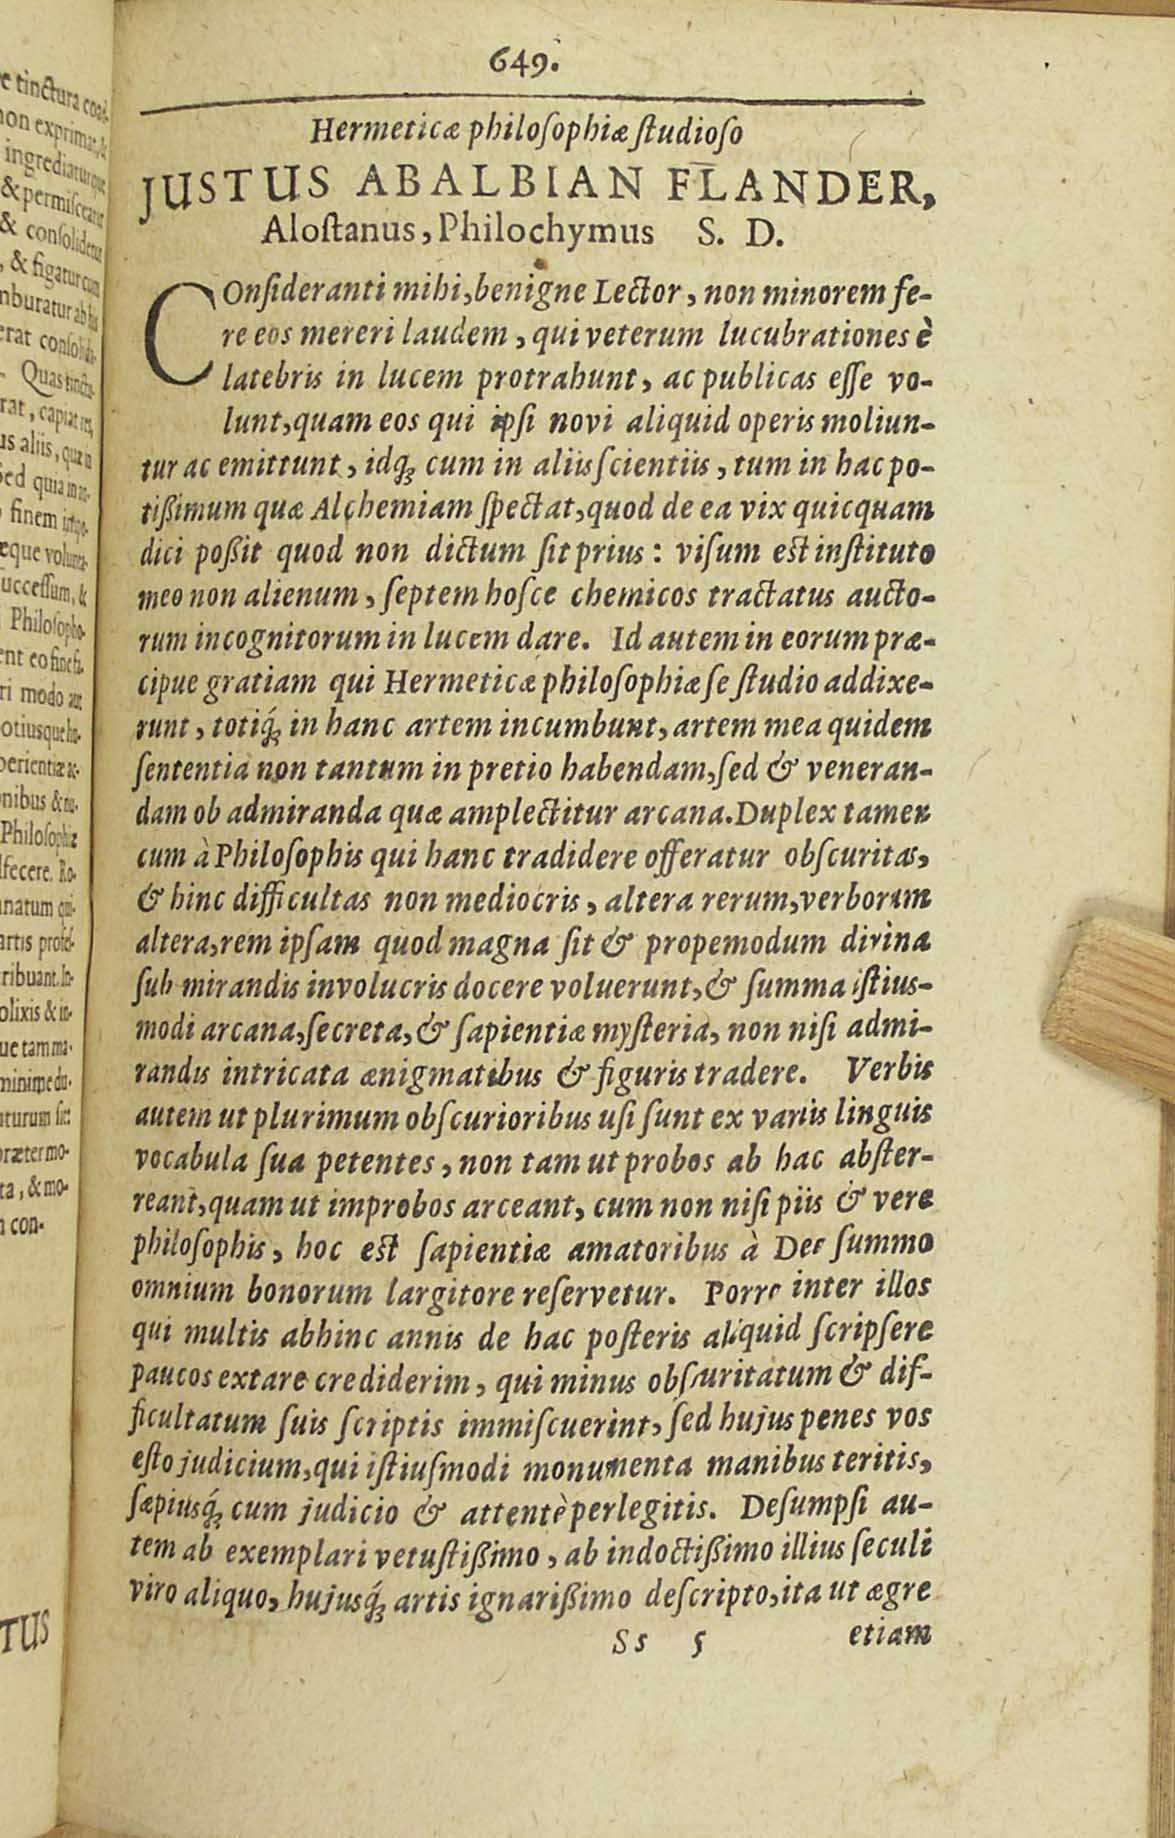 649.
Hermeticæ philosophiæ studioso
JUSTUS ABALBIAN FLANDER,
Alostanus, Philochymus S. D.
COnsideranti mihi, benigne Lector, non minorem fe-
re eos mereri laudem, qui veterum lucubrationes è
latebris in lucem protrahunt, ac publicas esse vo-
lunt, quam eos qui ipsi novi aliquid operis moliun-
tur ac emittunt, idq́ꝫ cum in aliis scientiis, tum in hac po-
tißimum quæ Alchemiam spectat, quod de ea vix quicquam
dici poßit quod non dictum sit prius: visum est instituto
meo non alienum, septem hosce chemicos tractatus aucto-
rum incognitorum in lucem dare. Id autem in eorum præ-
cipue gratiam qui Hermeticæ philosophiæ se studio addixe-
runt, totiq́ꝫ in hanc artem incumbunt, artem mea quidem
sententia non tantum in pretio habendam, sed & veneran-
dam ob admiranda quæ amplectitur arcana. Duplex tamen
cum à Philosophis qui hanc tradidere offeratur obscuritas,
& hinc difficultas non mediocris, altera rerum, verborum
altera, rem ipsam quod magna sit & propemodum divina
sub mirandis involucris docere voluerunt, & summa istius-
modi arcana, secreta, & sapientiæ mysteria, non nisi admi-
randis intricata ænigmatibus & figuris tradere. Verbis
autem ut plurimum obscurioribus usi sunt ex variis linguis
vocabula sua petentes, non tam ut probos ab hac abster-
reant, quam ut improbos arceant, cum non nisi piis & vere
philosophis, hoc est sapientiæ amatoribus à Deo summo
omnium bonorum largitore reservetur. Porro inter illos
qui multis abhinc annis de hac posteris aliquid scripsere
paucos extare crediderim, qui minus obscuritatum & dif-
ficultatum suis scriptis immiscuerint, sed hujus penes vos
esto judicium, qui istiusmodi monumenta manibus teritis,
sæpiusq́ꝫ cum judicio & attentè perlegitis. Desumpsi au-
tem ab exemplari vetustißimo, ab indoctißimo illius seculi
viro aliquo, hujusq́ꝫ artis ignarißimo descripto, ita ut ægre
Ss 5 etiam